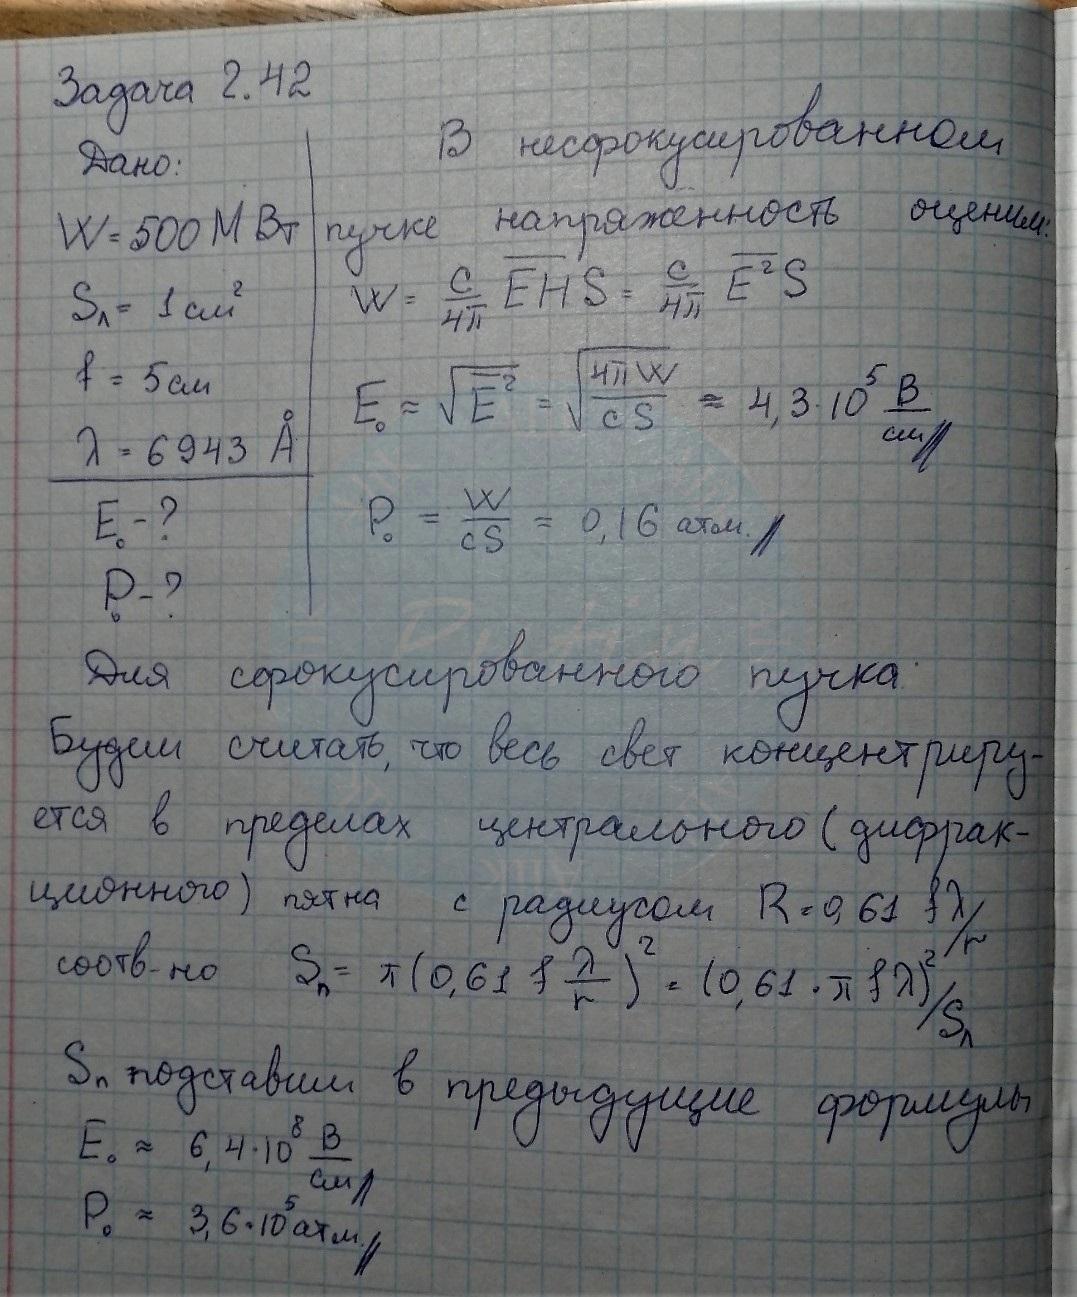 Задача 2.42
Дано:
W = 500 МВт
Sл = 1 см²
f = 5 см
λ = 6943 Å
E₀ - ?
P₀ - ?
В несфокусированном
пучке напряженность оценим:
W = c/4π \overline{EH} S = c/4π \overline{E²} S
E₀ ≈ √\overline{E²} = √(4πW/cS) ≈ 4,3·10⁵ В/см
P₀ = W/cS = 0,16 атм.
Для сфокусированного пучка:
Будем считать, что весь свет концентриру-
ется в пределах центрального (дифрак-
ционного) пятна с радиусом R = 0,61 fλ/r
соотв-но Sп = π(0,61 f λ/r)² = (0,61·π fλ)²/Sл
Sп подставим в предыдущие формулы
E₀ ≈ 6,4·10⁸ В/см
P₀ ≈ 3,6·10⁵ атм.